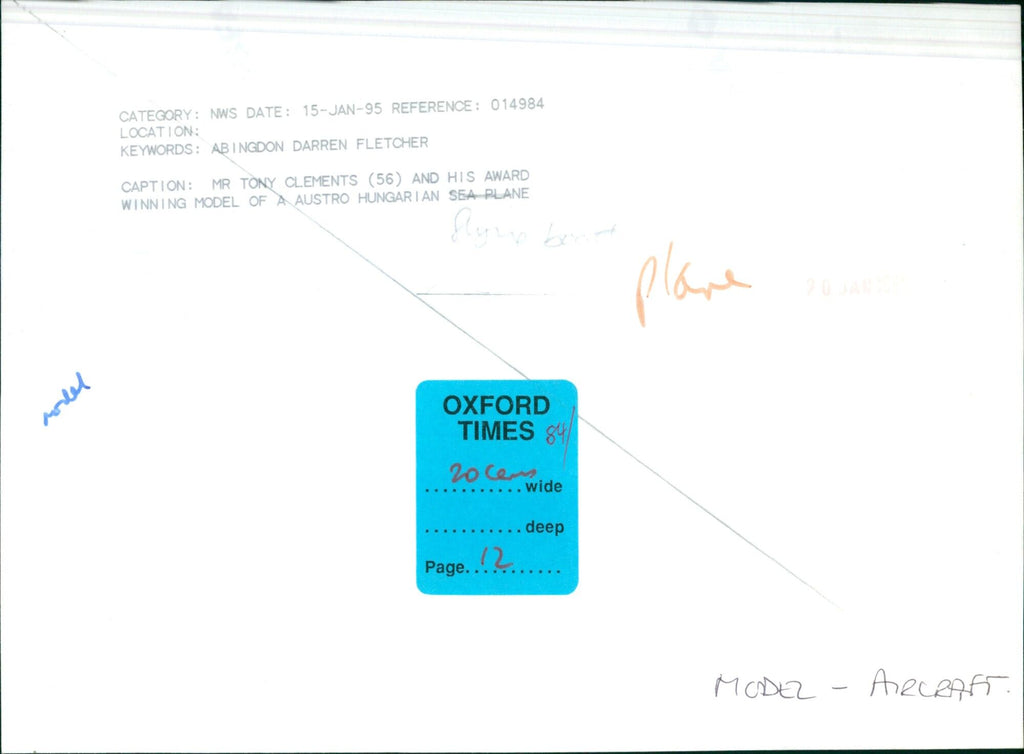 CATEGORY: NWS DATE: 15-JAN-95 REFERENCE: 014984
LOCATION:
KEYWORDS: ABINGDON DARREN FLETCHER
CAPTION: MR TONY CLEMENTS (56) AND HIS AWARD
WINNING MODEL OF A AUSTRO HUNGARIAN SEA PLANE
flying boat
plane
20 JAN
model
OXFORD
TIMES 84/
20 cms wide
...........deep
Page..12..........
MODEL - AIRCRAFT.